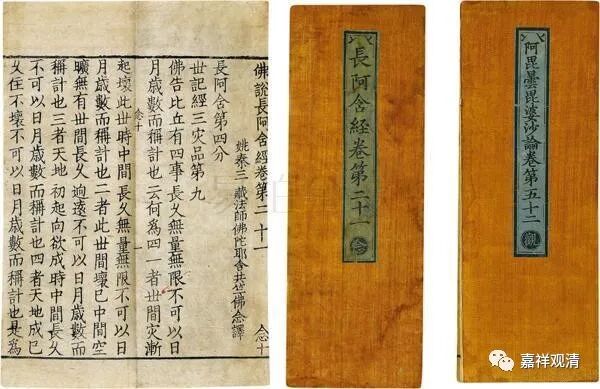 佛說長阿含經卷第二十一
念十
姚秦三藏法師佛陀耶舍共竺佛念譯
長阿含第四分
世記經三灾品第九
佛告比丘有四事長久無量無限不可以日
月歲數而稱計也云何為四一者世間灾漸
起壞此世時中間長久無量無限不可以日
念十
月歲數而稱計也二者此世間壞已中間空
曠無有世間長久逈遠不可以日月歲數而
稱計也三者天地初起向欲成時中間長久
不可以日月歲數而稱計也四者天地成已
久住不壞不可以日月歲數而稱計也是為
長阿含經卷第二十一
念
阿毘曇毘婆沙論卷第五十二
觀
嘉祥观清